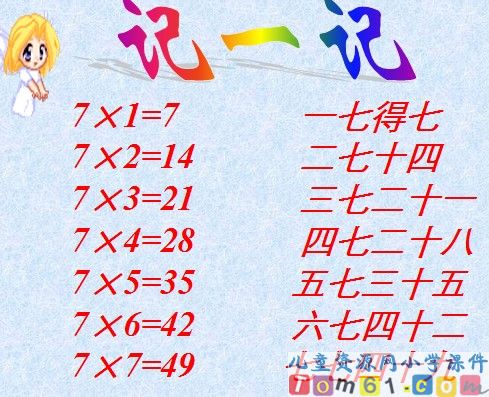 记一记
7×1=7 一七得七
7×2=14 二七十四
7×3=21 三七二十一
7×4=28 四七二十八
7×5=35 五七三十五
7×6=42 六七四十二
7×7=49
儿童资源网小学课件
Tom61.com